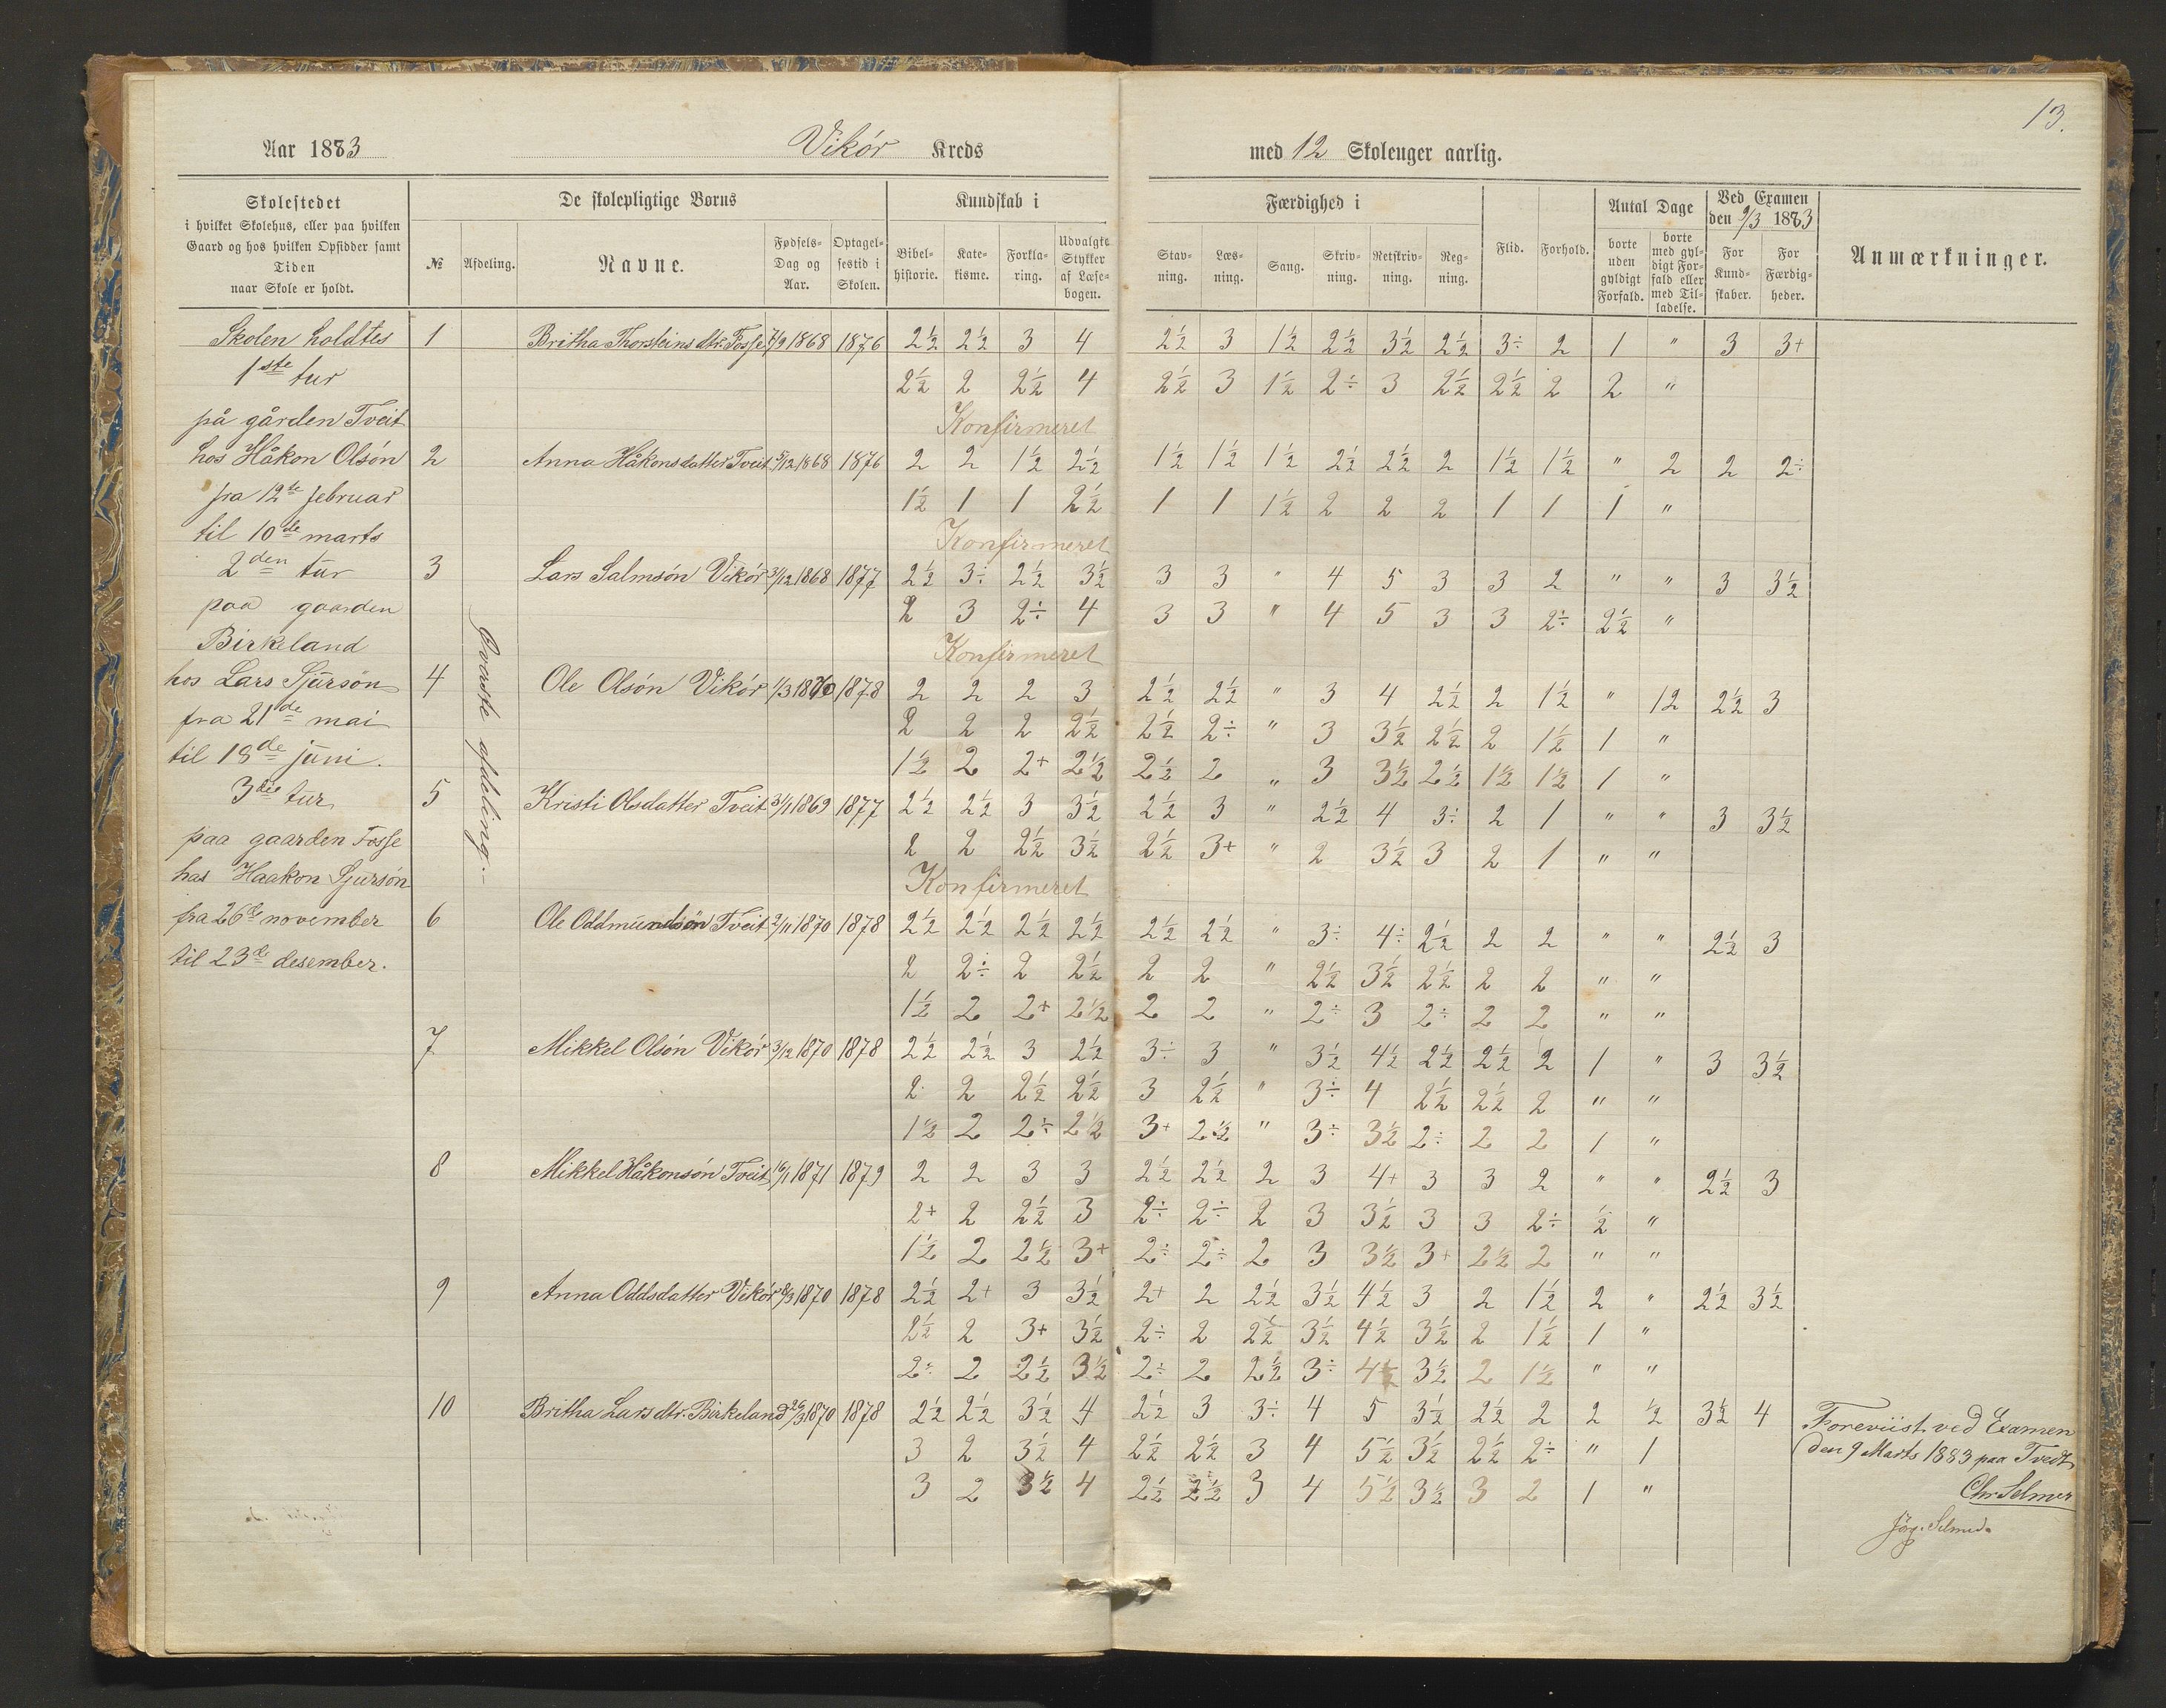 13.
Aar 1883 Vikór Kreds med 12 Skoleuger aarlig.
Skolestedet i hvilket Skolehus, eller paa hvilken Gaard og hos hvilken Opsidder samt Tiden naar Skole er holdt.
De skolepligtige Børns
№ Afdeling. Navne. Fødsels-Dag og Aar. Optagel-sestid i Skolen.
Kundskab i
Bibel-historie. Kate-kisme. Forkla-ring. Udvalgte Stykker af Læse-bogen.
Færdighed i
Stav-ning. Læs-ning. Sang. Skriv-ning. Retskriv-ning. Reg-ning.
Flid. Forhold.
Antal Dage
borte uden gyldigt Forfald. borte med gyl-digt For-fald eller med Til-ladelse.
Ved Examen den 9/3 1883
For Kund-skaber. For Færdig-heder.
Anmærkninger.
Skolen holdtes
1ste tur
på gården Tveit
hos Håkon Olsón
fra 12te februar
til 10de marts
2den tur
paa gaarden
Birkeland
hos Lars Sjursön
fra 21de mai
til 18de juni.
3die tur
paa gaarden Fosse
hos Haakon Sjursön
fra 26de november
til 23de desember.
Øverste afdeling.
1 Britha Thorsteinsdtr. Fosse 7/9 1868 1876 2½ 2½ 3 4 2½ 3 1½ 2½ 3½ 2½ 3÷ 2 1 " 3 3+
2½ 2 2½ 4 2½ 3 1½ 2÷ 3 2½ 2½ 2 2 "
Konfirmeret
2 Anna Håkonsdatter Tveit 5/12 1868 1876 2 2 1½ 2½ 1½ 1½ 1½ 2½ 2½ 2 1½ 1½ " 2 2 2÷
1½ 1 1 2½ 1 1 1½ 2 2 2 1 1 1 "
Konfirmeret
3 Lars Salmsón Vikór 3/12 1868 1877 2½ 3÷ 2½ 3½ 3 3 " 4 5 3 3 2 " " 3 3½
2 3 2÷ 4 3 3 " 4 5 3 3 2÷ 2½ "
Konfirmeret
4 Ole Olsón Vikór 1/3 1870 1878 2 2 2 3 2½ 2½ " 3 4 2½ 2 1½ " 12 2½ 3
2 2 2 2½ 2½ 2÷ " 3 3½ 2½ 2 1½ 1 "
1½ 2 2+ 2½ 2½ 2 " 3 3½ 2½ 1½ 1½ 1 "
5 Kristi Olsdatter Tveit 31/1 1869 1877 2½ 2½ 3 3½ 2½ 3 " 2½ 4 3÷ 2 1 " " 3 3½
2 2 2½ 3½ 2½ 3+ " 2 3½ 3 2 1 " "
Konfirmeret
6 Ole Oddmundsön Tveit 2/11 1870 1878 2½ 2½ 2½ 2½ 2½ 2½ " 3÷ 4÷ 2½ 2 2 " " 2½ 3
2 2÷ 2 2½ 2 2 " 2½ 3½ 2½ 2 2 " "
1½ 2 2+ 2½ 2 2 " 2÷ 3 2÷ 2 2 " "
7 Mikkel Olsón Vikór 3/12 1870 1878 2½ 2½ 3 2½ 3÷ 3 " 3½ 4½ 2½ 2½ 2 1 " 3 3½
2 2 2½ 2½ 3 2½ " 3÷ 4 2½ 2½ 2 " "
1½ 2 2÷ 2½ 3+ 2½ " 3÷ 3½ 2÷ 2 2 1 "
8 Mikkel Håkonsón Tveit 16/1 1871 1879 2 2 3 3 2½ 2½ 2 3 4+ 3 3 2 " " 2½ 3
2+ 2 2½ 3 2÷ 2÷ 2 3 3½ 3 3 2÷ ½ "
1½ 2 2½ 3+ 2÷ 2÷ 2 3 3½ 3+ 2½ 2 " "
9 Anna Oddsdatter Vikór 8/3 1870 1878 2½ 2+ 3 3½ 2+ 2 2½ 3½ 4½ 3 2 1½ 2 " 2½ 3½
2½ 2 3+ 3½ 2÷ 2 2½ 3½ 4½ 3½ 2 1½ 1 "
2÷ 2 2½ 3½ 2÷ 2 2½ 3÷ 4½ 3½ 2 1½ " "
10 Britha Larsdtr. Birkeland 26/3 1870 1878 2½ 2½ 3½ 4 2½ 3 3÷ 4 5 3½ 2½ 2 2 ½ 3½ 4
3 2 3½ 4 2½ 2½ 3 4 5½ 3½ 2½ 2÷ " 1
3 2 3½ 4 2½ 2½ 3 4 5½ 3½ 3 2 1 "
Foreviist ved Examen
den 9 Marts 1883 paa Tvedt
Chr Selmer